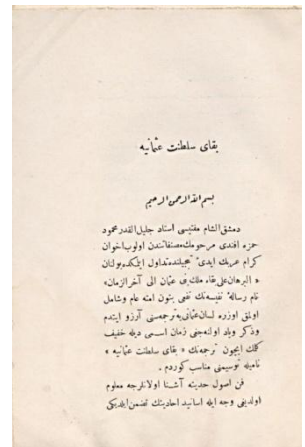 بقای سلطنت عثمانیه
بسم الله الرحمن الرحیم
دمشق الشام مفتیسی استاد جلیل القدر محمود
حمزه افندی مرحومك مصنفاتندن اولوب اخوان
كرام عربك ایدیٔ تبجیلنده تداول ایتمكده بولنان
« البرهان علی بقاء ملك بنی عثمان الی آخر الزمان »
نام رسالهٔ نفیسه‌نك نفعی بتون امته عام وشامل
اولمق اوزره لسان عثمانی‌یه ترجمه‌سنی آرزو ایتدم
وذكر ویاد اولنه‌جنی زمان اسمی دیله خفیف
كلمك ایچون ترجمه‌نك « بقای سلطنت عثمانیه »
نامیله توسیمنی مناسب كوردم .
فن اصول حدیثه آشنا اولانلرجه معلوم
اولدیغی وجه ایله اسانید احادیثك تضمن ایلدیكی